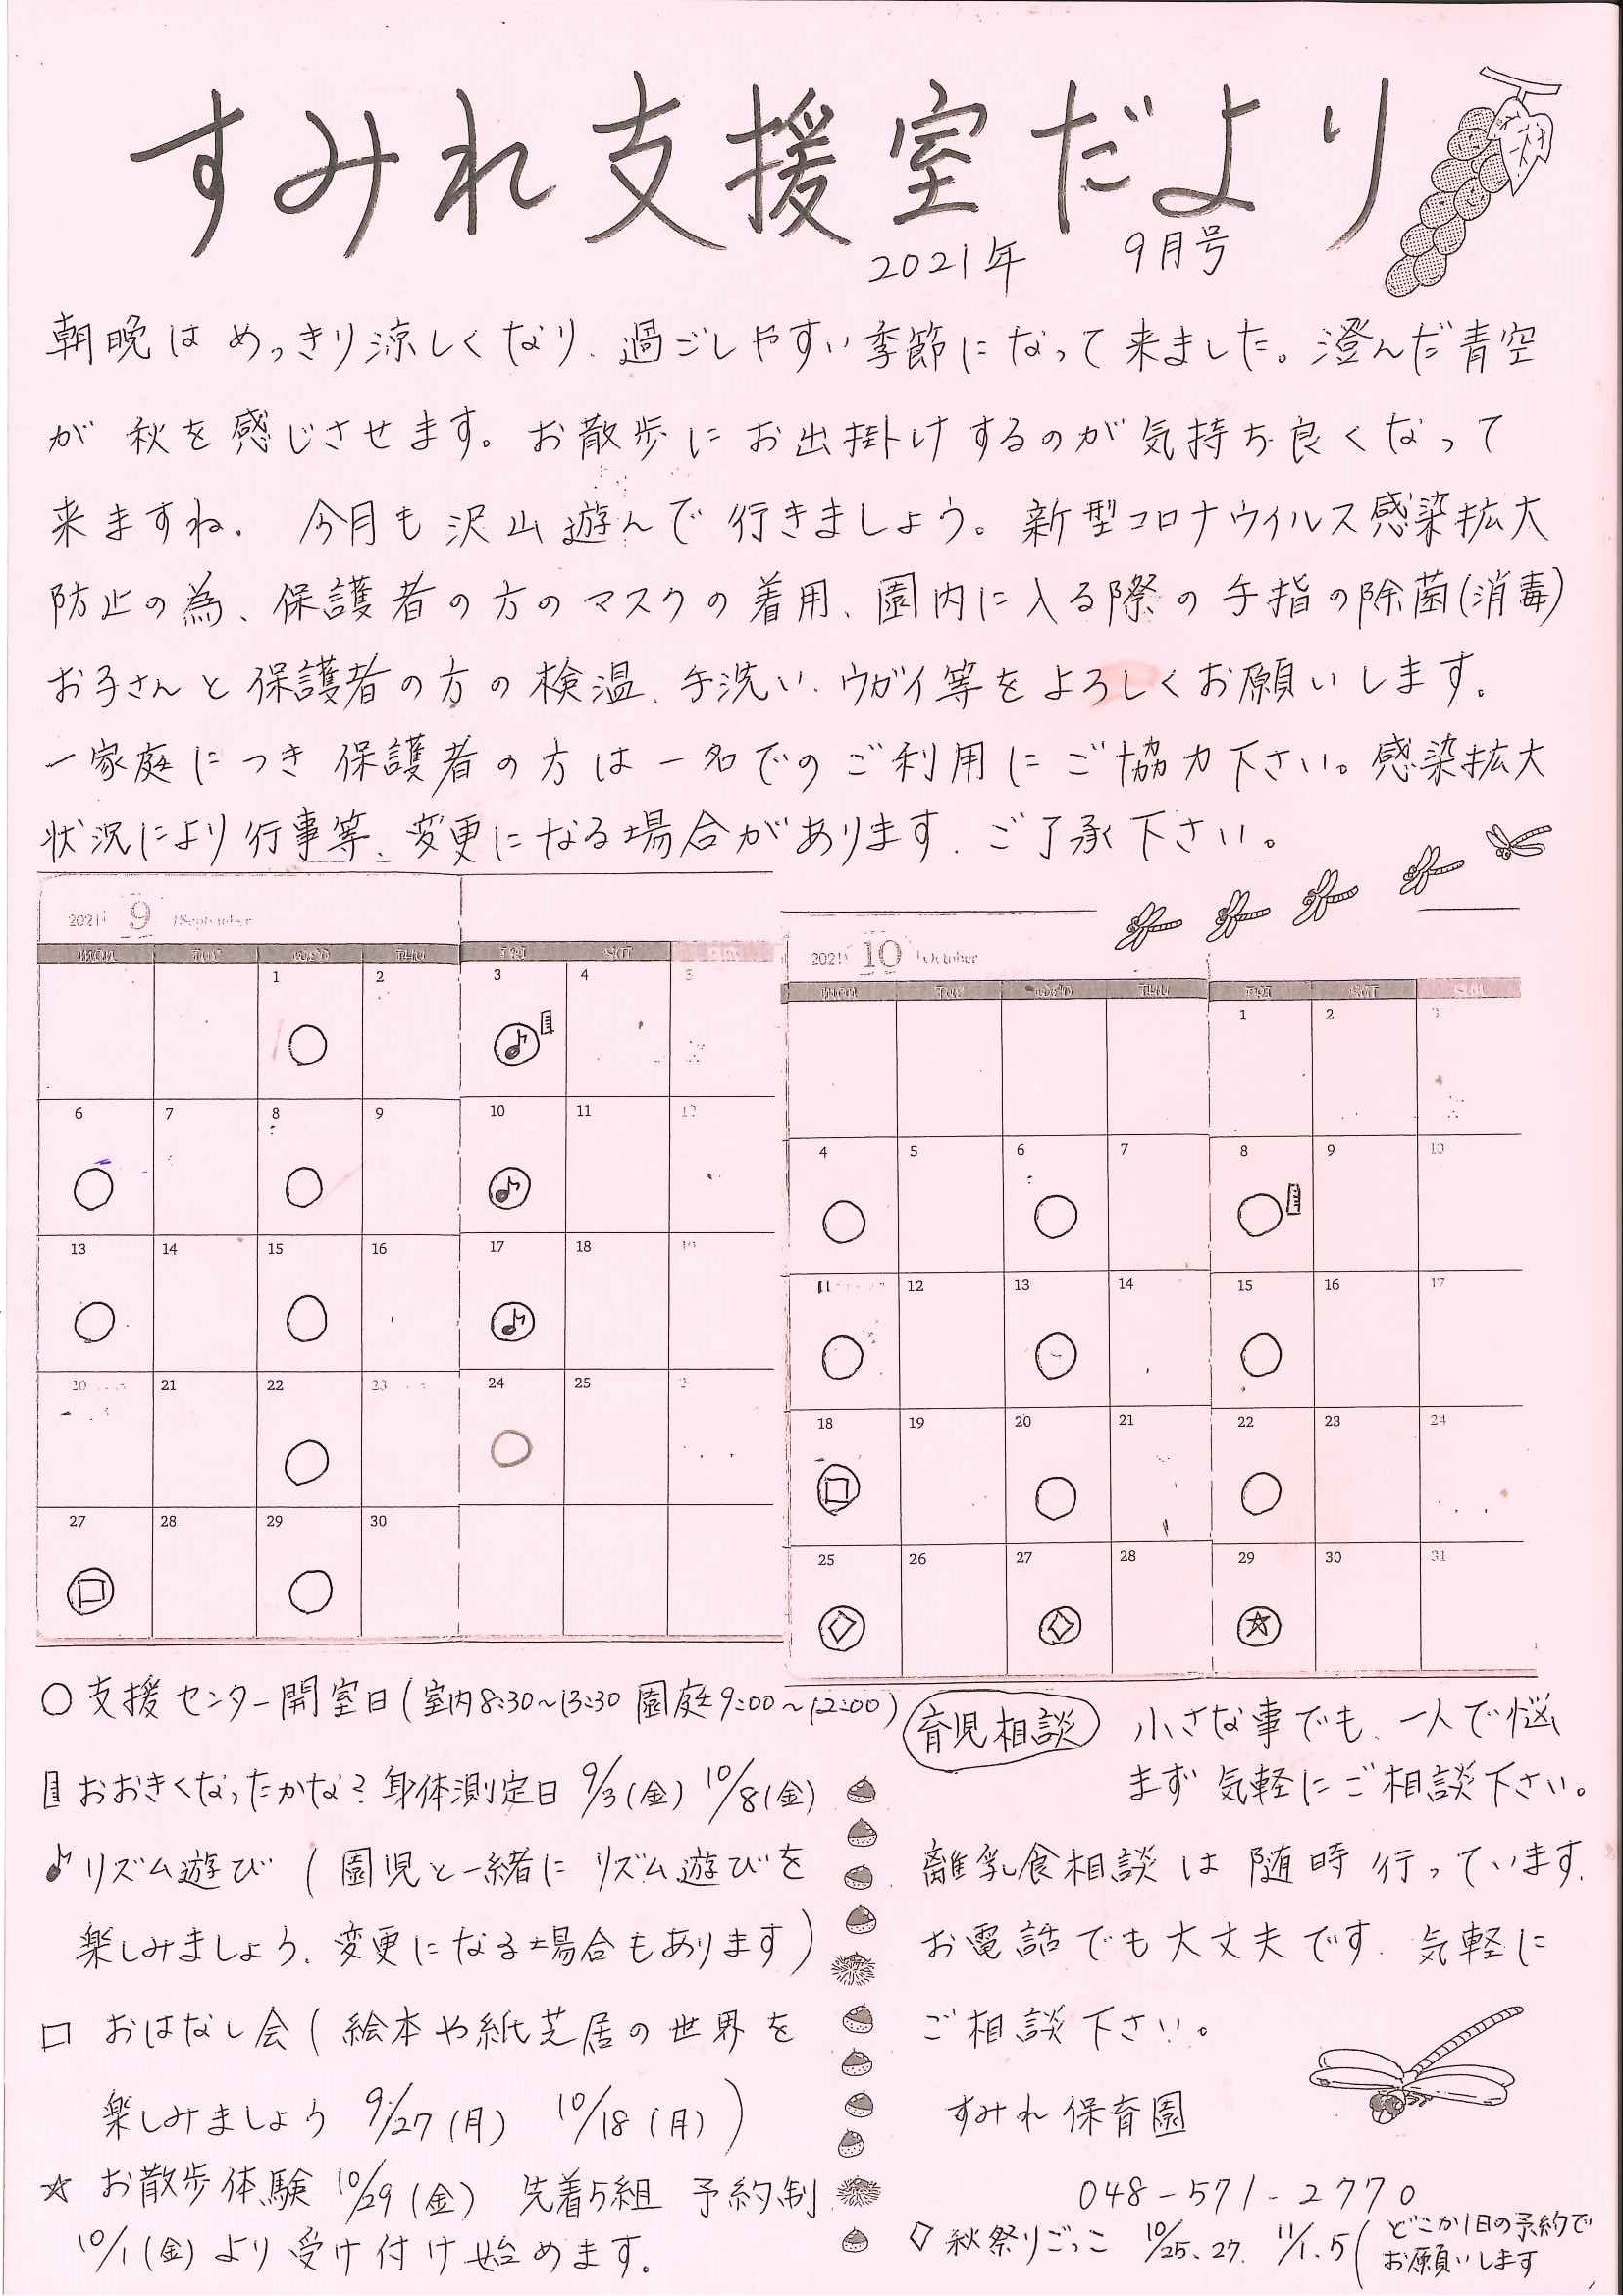 すみれ支援室だより
2021年 9月号
朝晩はめっきり涼しくなり、過ごしやすい季節になって来ました。澄んだ青空
が秋を感じさせます。お散歩にお出掛けするのが気持ち良くなって
来ますね。今月も沢山遊んで行きましょう。新型コロナウイルス感染拡大
防止の為、保護者の方のマスクの着用、園内に入る際の手指の除菌(消毒)
お子さんと保護者の方の検温、手洗い、ウガイ等をよろしくお願いします。
一家庭につき保護者の方は一名でのご利用にご協力下さい。感染拡大
状況により行事等、変更になる場合があります。ご了承下さい。
2021 9 September
MON TUE WED THU FRI SAT
1 2 3 4 5
6 7 8 9 10 11 12
13 14 15 16 17 18 19
20 21 22 23 24 25
27 28 29 30
2021 10 October
MON TUE WED THU FRI SAT SUN
1 2 3
4 5 6 7 8 9 10
11 12 13 14 15 16 17
18 19 20 21 22 23 24
25 26 27 28 29 30 31
○支援センター開室日(室内8:30~13:30 園庭9:00~12:00)
おおきくなったかな?身体測定日 9/3(金) 10/8(金)
♪リズム遊び(園児と一緒にリズム遊びを
楽しみましょう。変更になる場合もあります)
□ おはなし会(絵本や紙芝居の世界を
楽しみましょう 9/27(月) 10/18(月))
☆ お散歩体験 10/29(金) 先着5組 予約制
10/1(金)より受け付け始めます。
育児相談 小さな事でも、一人で悩
まず気軽にご相談下さい。
離乳食相談は随時行っています。
お電話でも大丈夫です。気軽に
ご相談下さい。
すみれ保育園
048-571-2770
◇秋祭りごっこ 10/25、27、11/1、5(どこか1日の予約で
お願いします